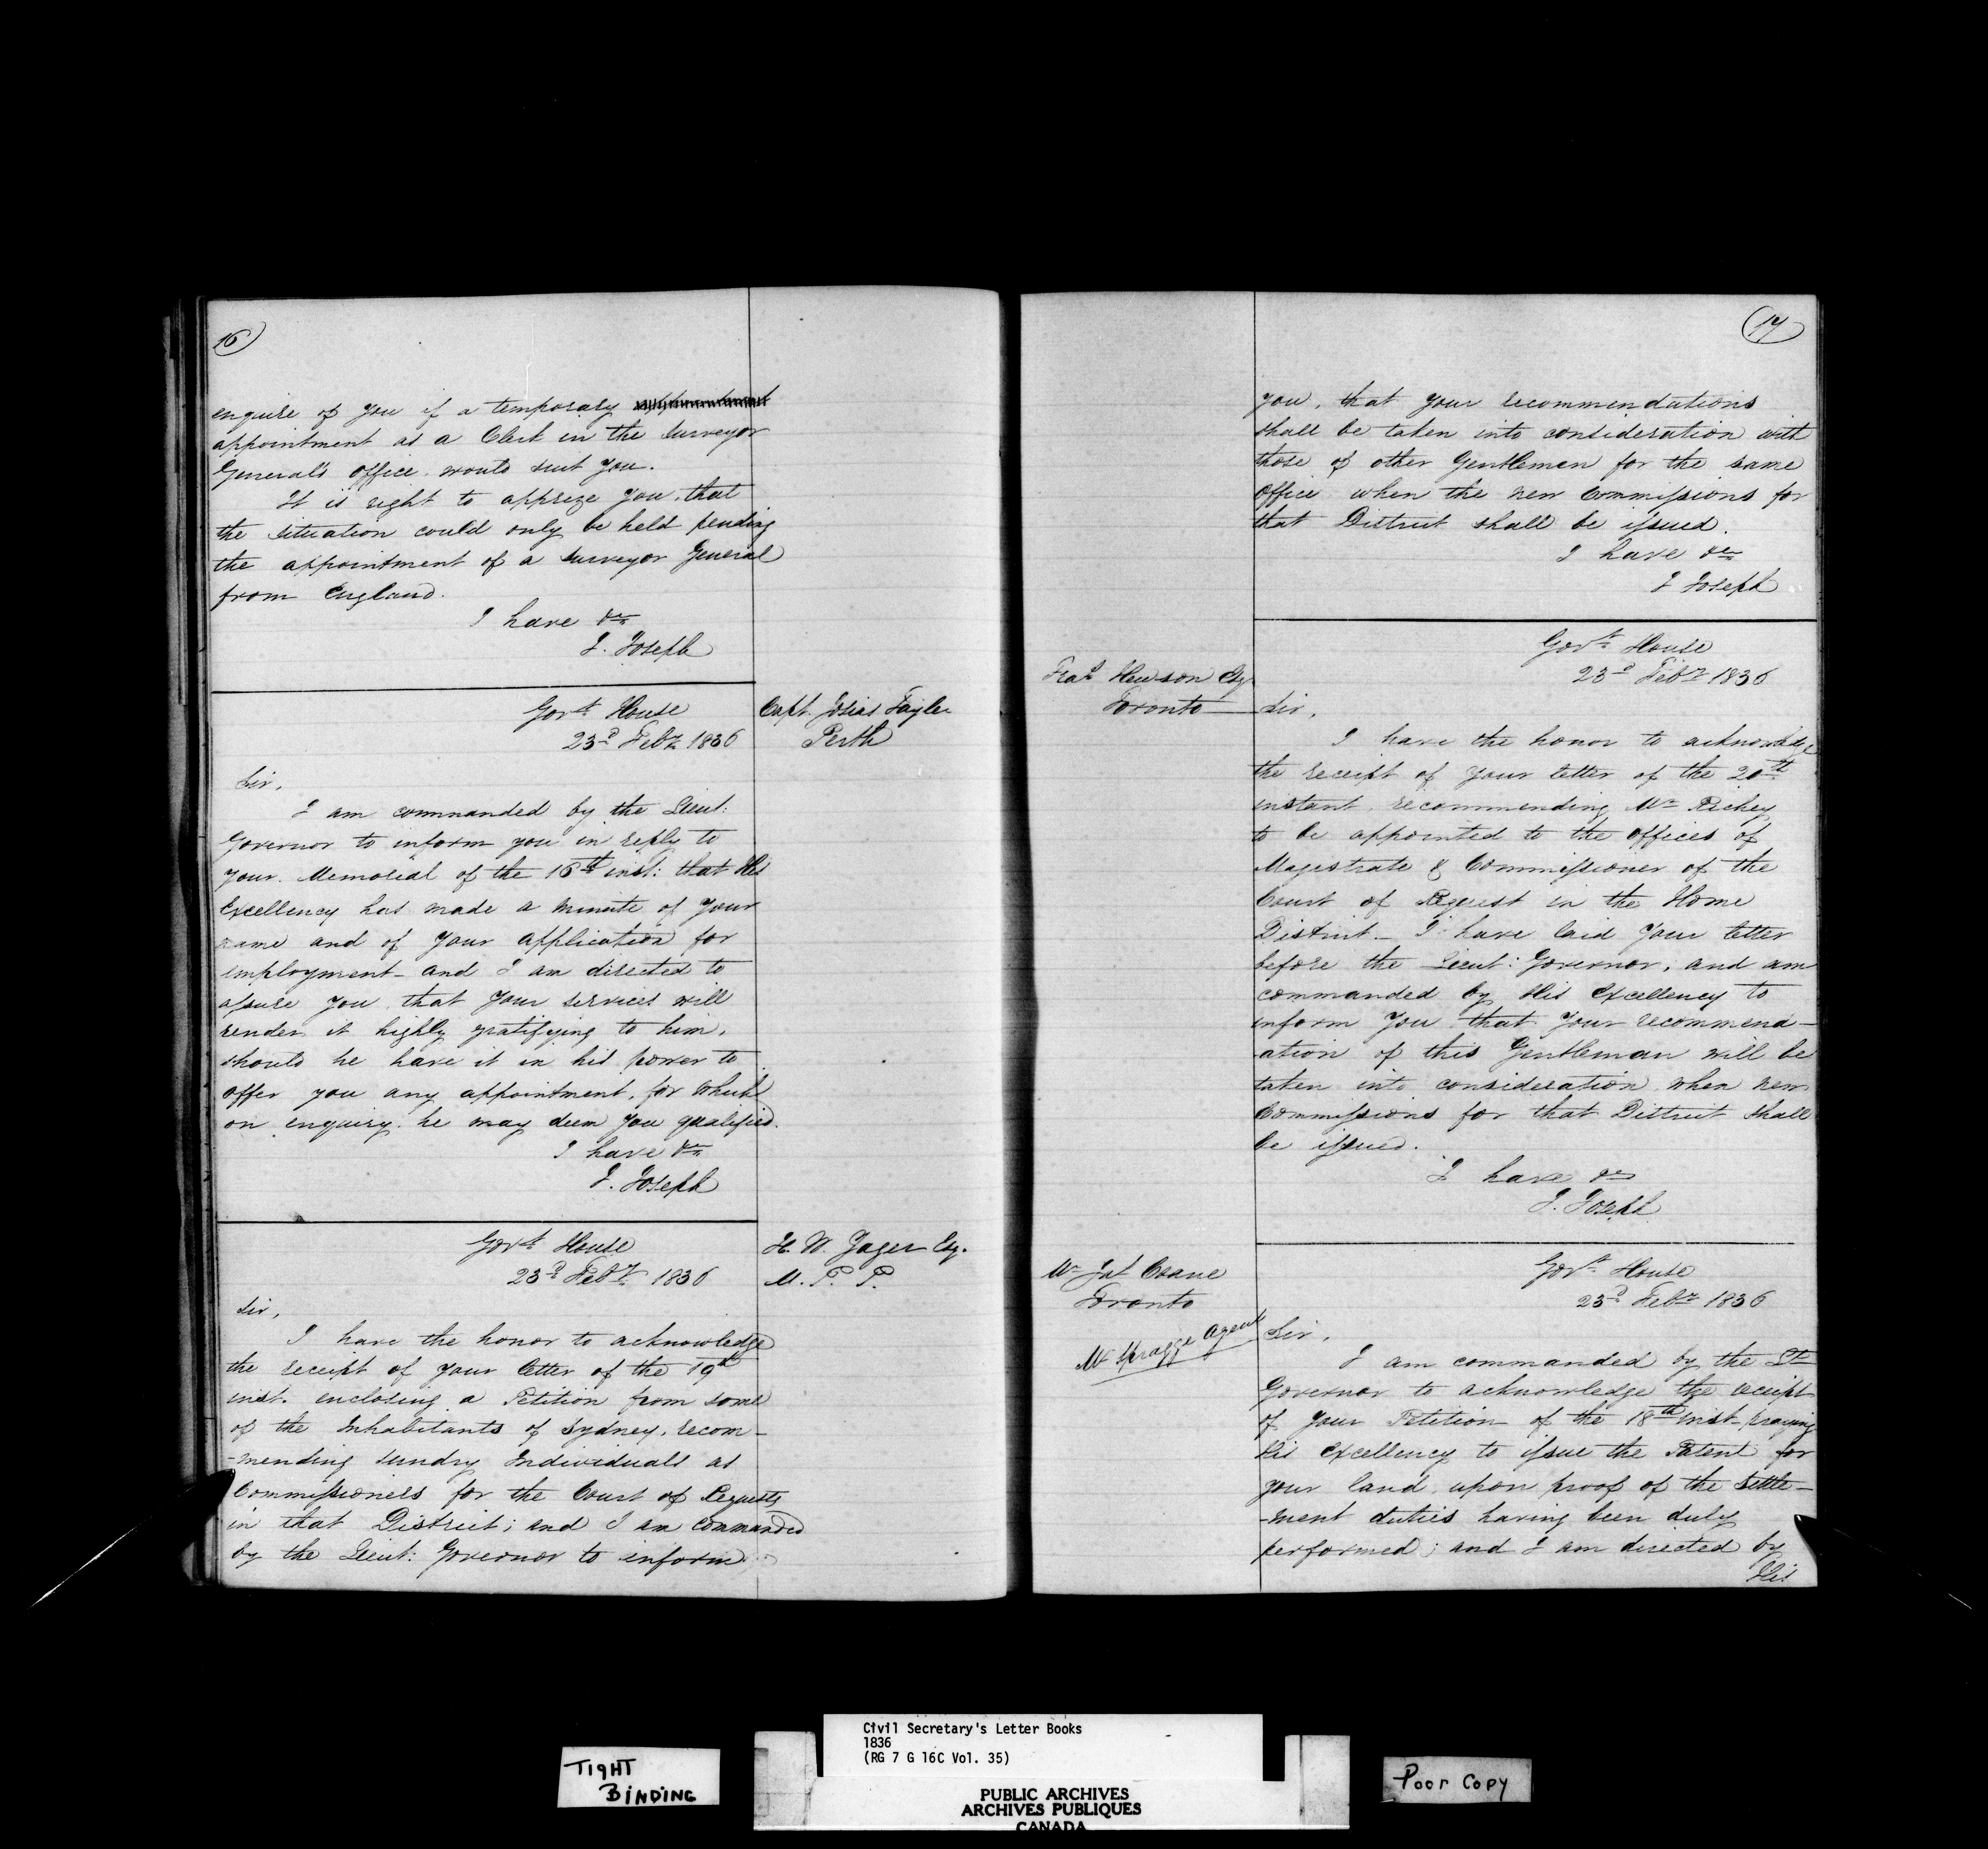 16
enquire of you if a temporary
appointment as a Clerk in the Surveyor
General's Office would suit you.
It is right to apprize you, that
the situation could only be held pending
the appointment of a Surveyor General
from England.
I have &c
J. Joseph
Govt. House
23d Feby 1836
Capt. Josias Tayler
Perth
Sir,
I am commanded by the Lieut:
Governor to inform you in reply to
your Memorial of the 16th inst: that His
Excellency has made a minute of your
name and of your application for
employment - and I am directed to
assure you that your services will
render it highly gratifying to him,
should he have it in his power to
offer you any appointment, for which
on enquiry he may deem you qualified.
I have &c
J. Joseph
Govt. House
23d Feby 1836
H. W. Yager Esq.
M. P. P.
Sir,
I have the honor to acknowledge
the receipt of your letter of the 19th
inst. enclosing a Petition from some
of the Inhabitants of Sydney, recom-
-mending sundry Individuals as
Commissioners for the Court of Requests
in that District; and I am commanded
by the Lieut: Governor to inform
17
you, that your recommendations
shall be taken into consideration with
those of other Gentlemen for the same
Office when the new Commissions for
that District shall be issued.
I have &c
J Joseph
Govt. House
23d Feby 1836
Fras Hewson Esq
Toronto
Sir,
I have the honor to acknowledge
the receipt of your letter of the 20th
instant recommending Mr Richey
to be appointed to the offices of
Magistrate & Commissioner of the
Court of Request in the Home
District - I have laid your letter
before the Lieut: Governor, and am
commanded by His Excellency to
inform you that your recommend-
ation of this Gentleman will be
taken into consideration when new
Commissions for that District shall
be issued.
I have &c
J. Joseph
Govt. House
23d Feby 1836
Mr Jas Coane
Toronto
Mr Spragge Agent
Sir,
I am commanded by the Lt
Governor to acknowledge the receipt
of your Petition of the 18th inst. praying
His Excellency to issue the Patent for
your land, upon proof of the settle-
-ment duties having been duly
performed; and I am directed by
His
TIGHT
BINDING
Civil Secretary's Letter Books
1836
(RG 7 G 16C Vol. 35)
PUBLIC ARCHIVES
ARCHIVES PUBLIQUES
CANADA
Poor Copy